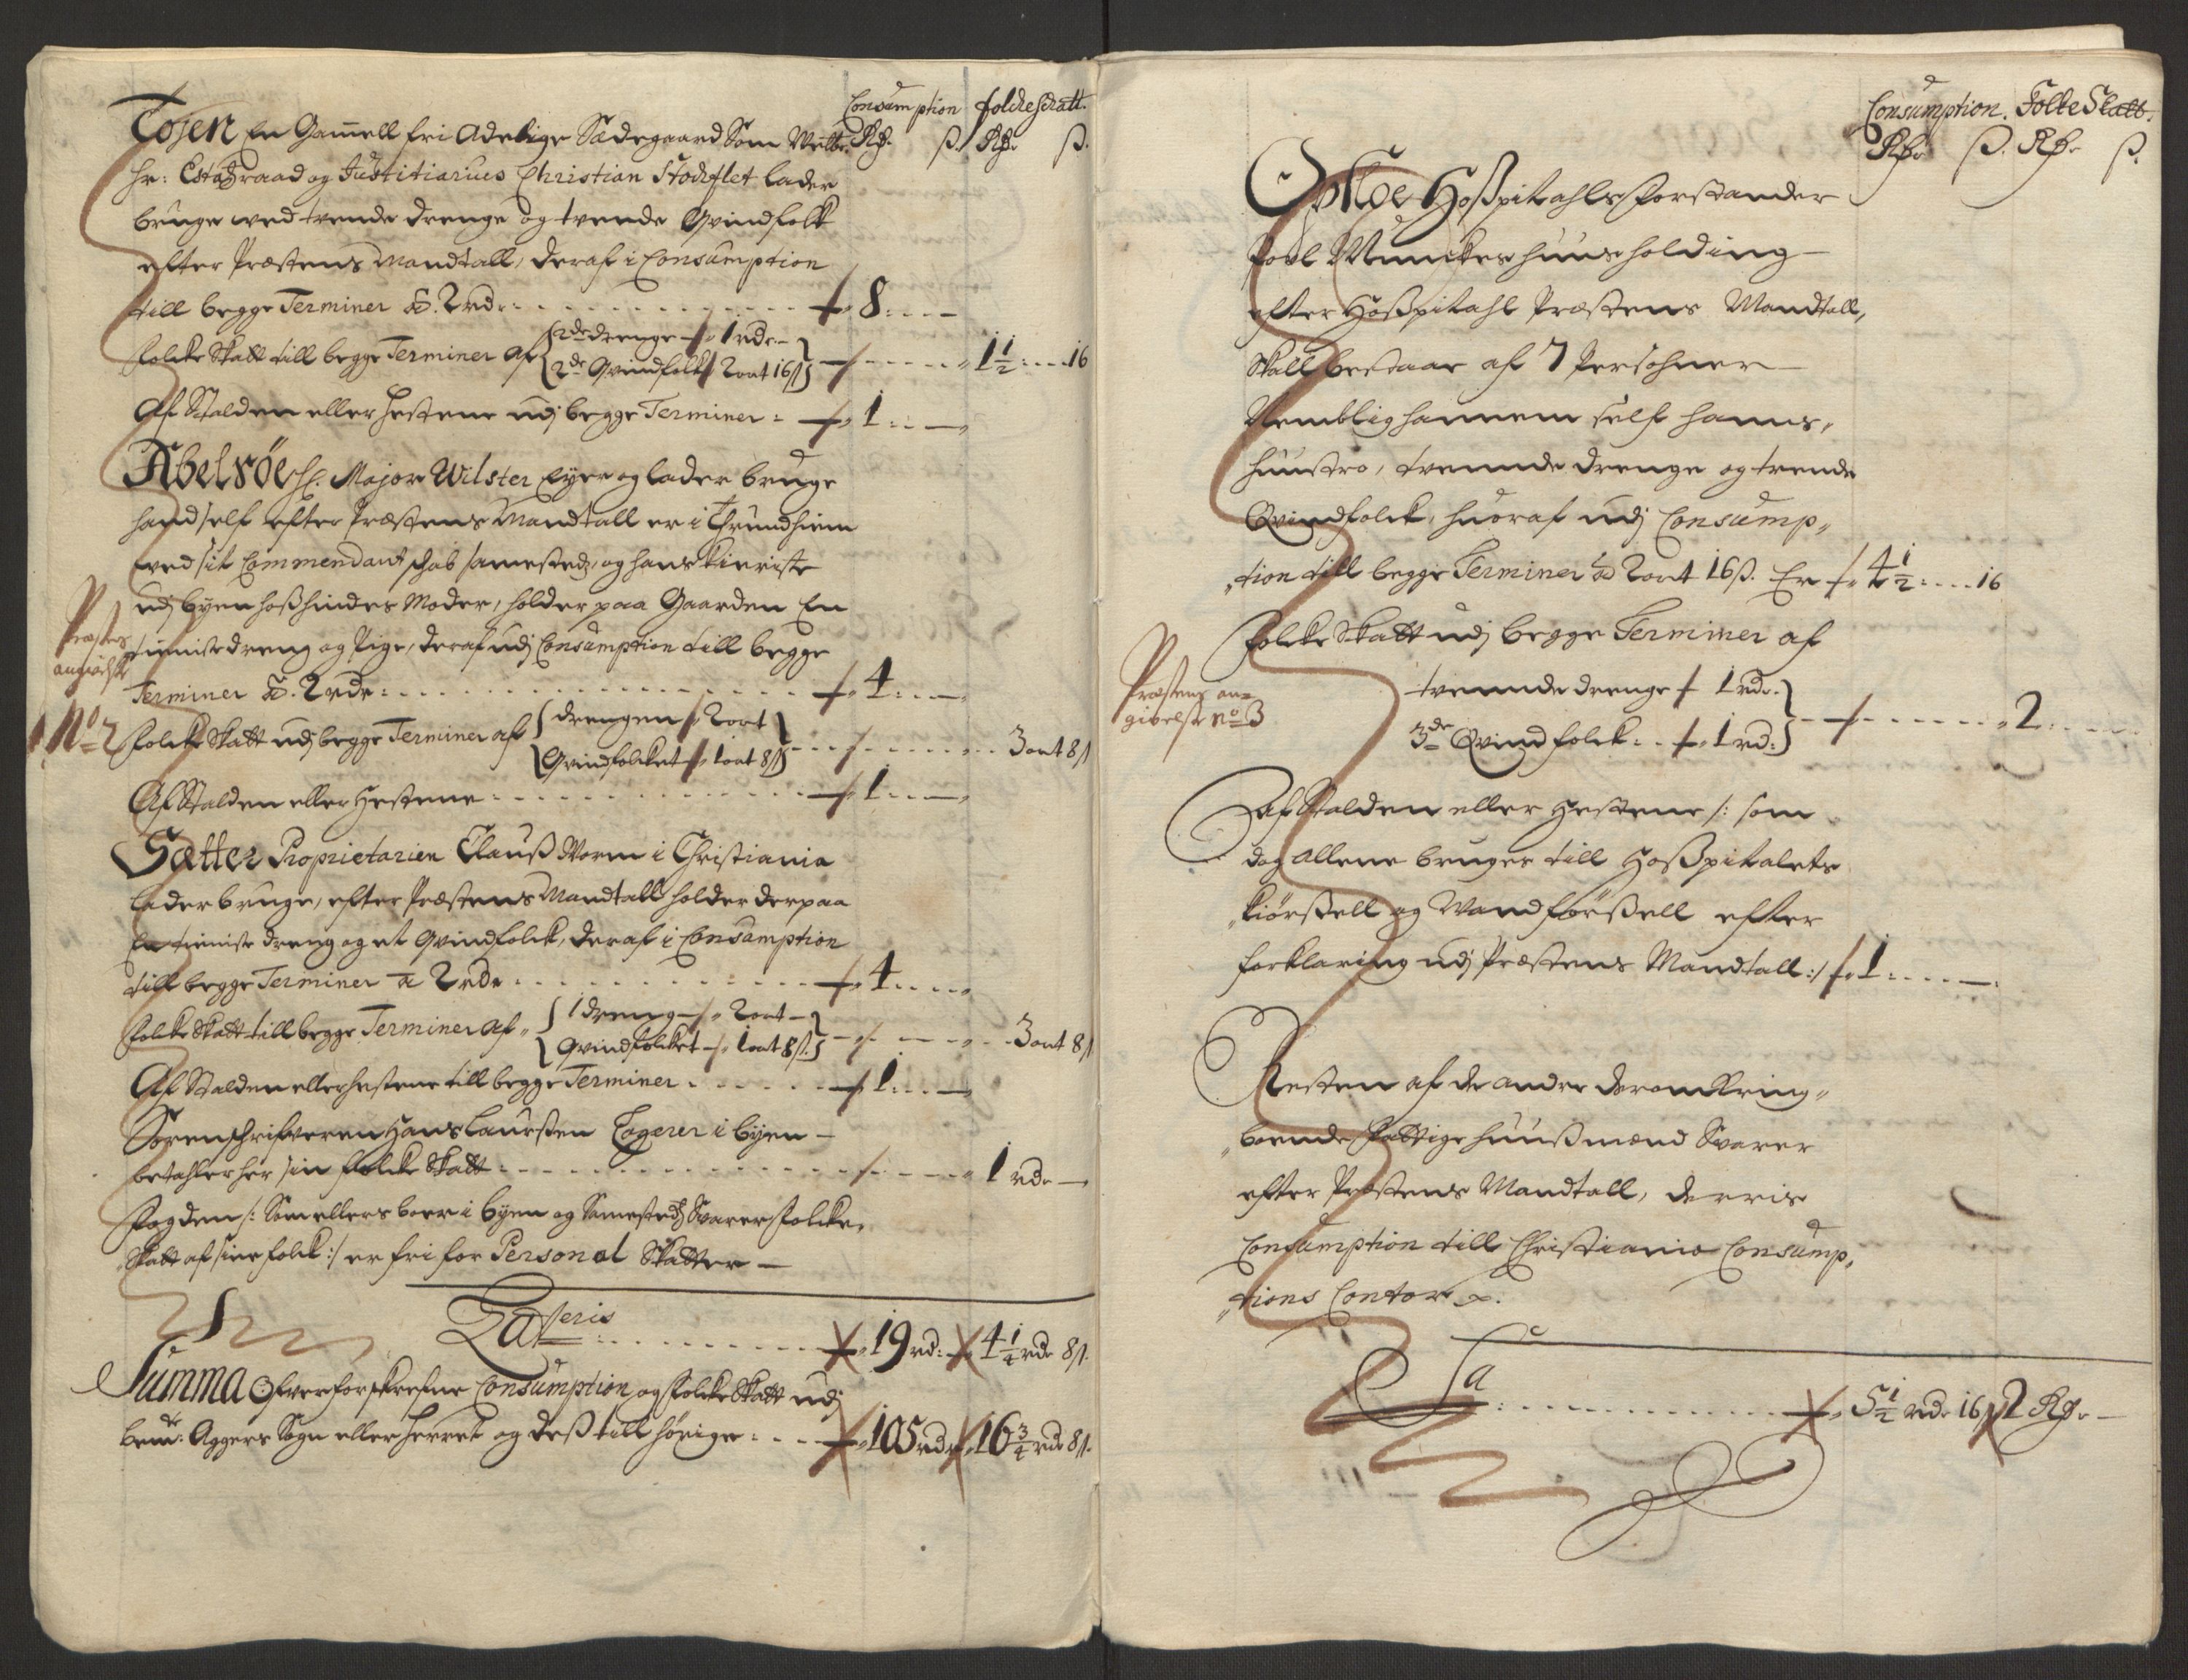 Consumption folckeschatt.
Rd. ß. Rd. ß.
Tøyen En Gamell fri Adelige Sædegaard Som Welbr.
Hr: Estatzraad og Justitiarius Christian Stockflet lader
bruge med tvende drenge og tvende Qvindfolk
efter Præstens Mandtall, deraf i Consumption
till begge Terminer â. 2 rdr: 8
folcke Skatt till begge Terminer af {2de drenge 1 rdr.
2de Qvindfolck 2 ort 16 ß} 1½ 16
Af Stalden eller Hestene udj begge Terminer: 1
Abelsøe Hr. Major Wilster Eyer og lader bruge
hand self efter Præstens Mandtall er i Thrundhiem
ved sit Commendantschab samestedz, og hans kieriste
udj byen hoß hindes Moder, holder paa Gaarden En
tieniste dreng og Pige, deraf udj Consumption till begge
Terminer â. 2 rdr: 4
Præstens
No 2
folcke Skatt udj begge Terminer af {drengen 2 ort
Qvindfolcket 1 ort 8 ß} 3 ort 8 ß
Af Stalden eller Hestene: 1
Sætter Proprietarien Clauß Worm i Christiania
lader bruge, efter Præstens Mandtall holder derpaa
En tieniste dreng og et Qvindfolck, deraf i Consumption
till begge Terminer â 2 rdr 4
folcke Skatt till begge Terminer af {1 dreng 2 ort
Qvindfolcket 1 ort 8 ß.} 3 ort 8 ß
Af Stalden eller hestene till begge Terminer 1
Sorenschrifveren Hans Laursen Logerer i byen
betahler her sin folcke Skatt 1 rdr
Fogden /: Som ellers boer i byen og Samestedz Svarer folcke
Skatt af sine folck :/ er fri for Personal Skatter
Lateris 19 rd: 4¼ rdr 8 ß.
Summa Ofverforskrefne Consumption og folcke Skatt udj
bemte: Aggers Sogn eller Herret og deß tilhørige 105 rdr 16¾ rdr 8 ß.
Consumption. Folke Skatt.
Rd. ß. Rd. ß.
Opsloe Hoßpitahls forstander
Povl Munckes huusholding
efter Hoßpitahl Præstens Mandtall,
Skall bestaar af 7 Persohner
Nemblig hannem self hanns,
huustro, tvennde drenge og trende
Qvindfolck, hvoraf udj Consump„
„tion till begge Terminer â 2 ort 16 ß. Er 4½ 16
Folcke Skatt udj begge Terminer af
tvennde drenge 1 rdr.
3de Qvindfolck 1 rd: 2
Præstens an=
givelse No 3
Af Stalden eller Hestene /: som
dog allene bruges till Hoßpitalets
kiørßell og Vandførßell efter
forklaring udj Præstens Mandtall :/ 1
Resten af de andre deromkring„
„boende fattige huußmænd Svarer
efter Præstens Mandtall, deris
Consumption till Christiania Consump„
„tions Contor
Sa 5½ rdr 16 ß 2 Rd.